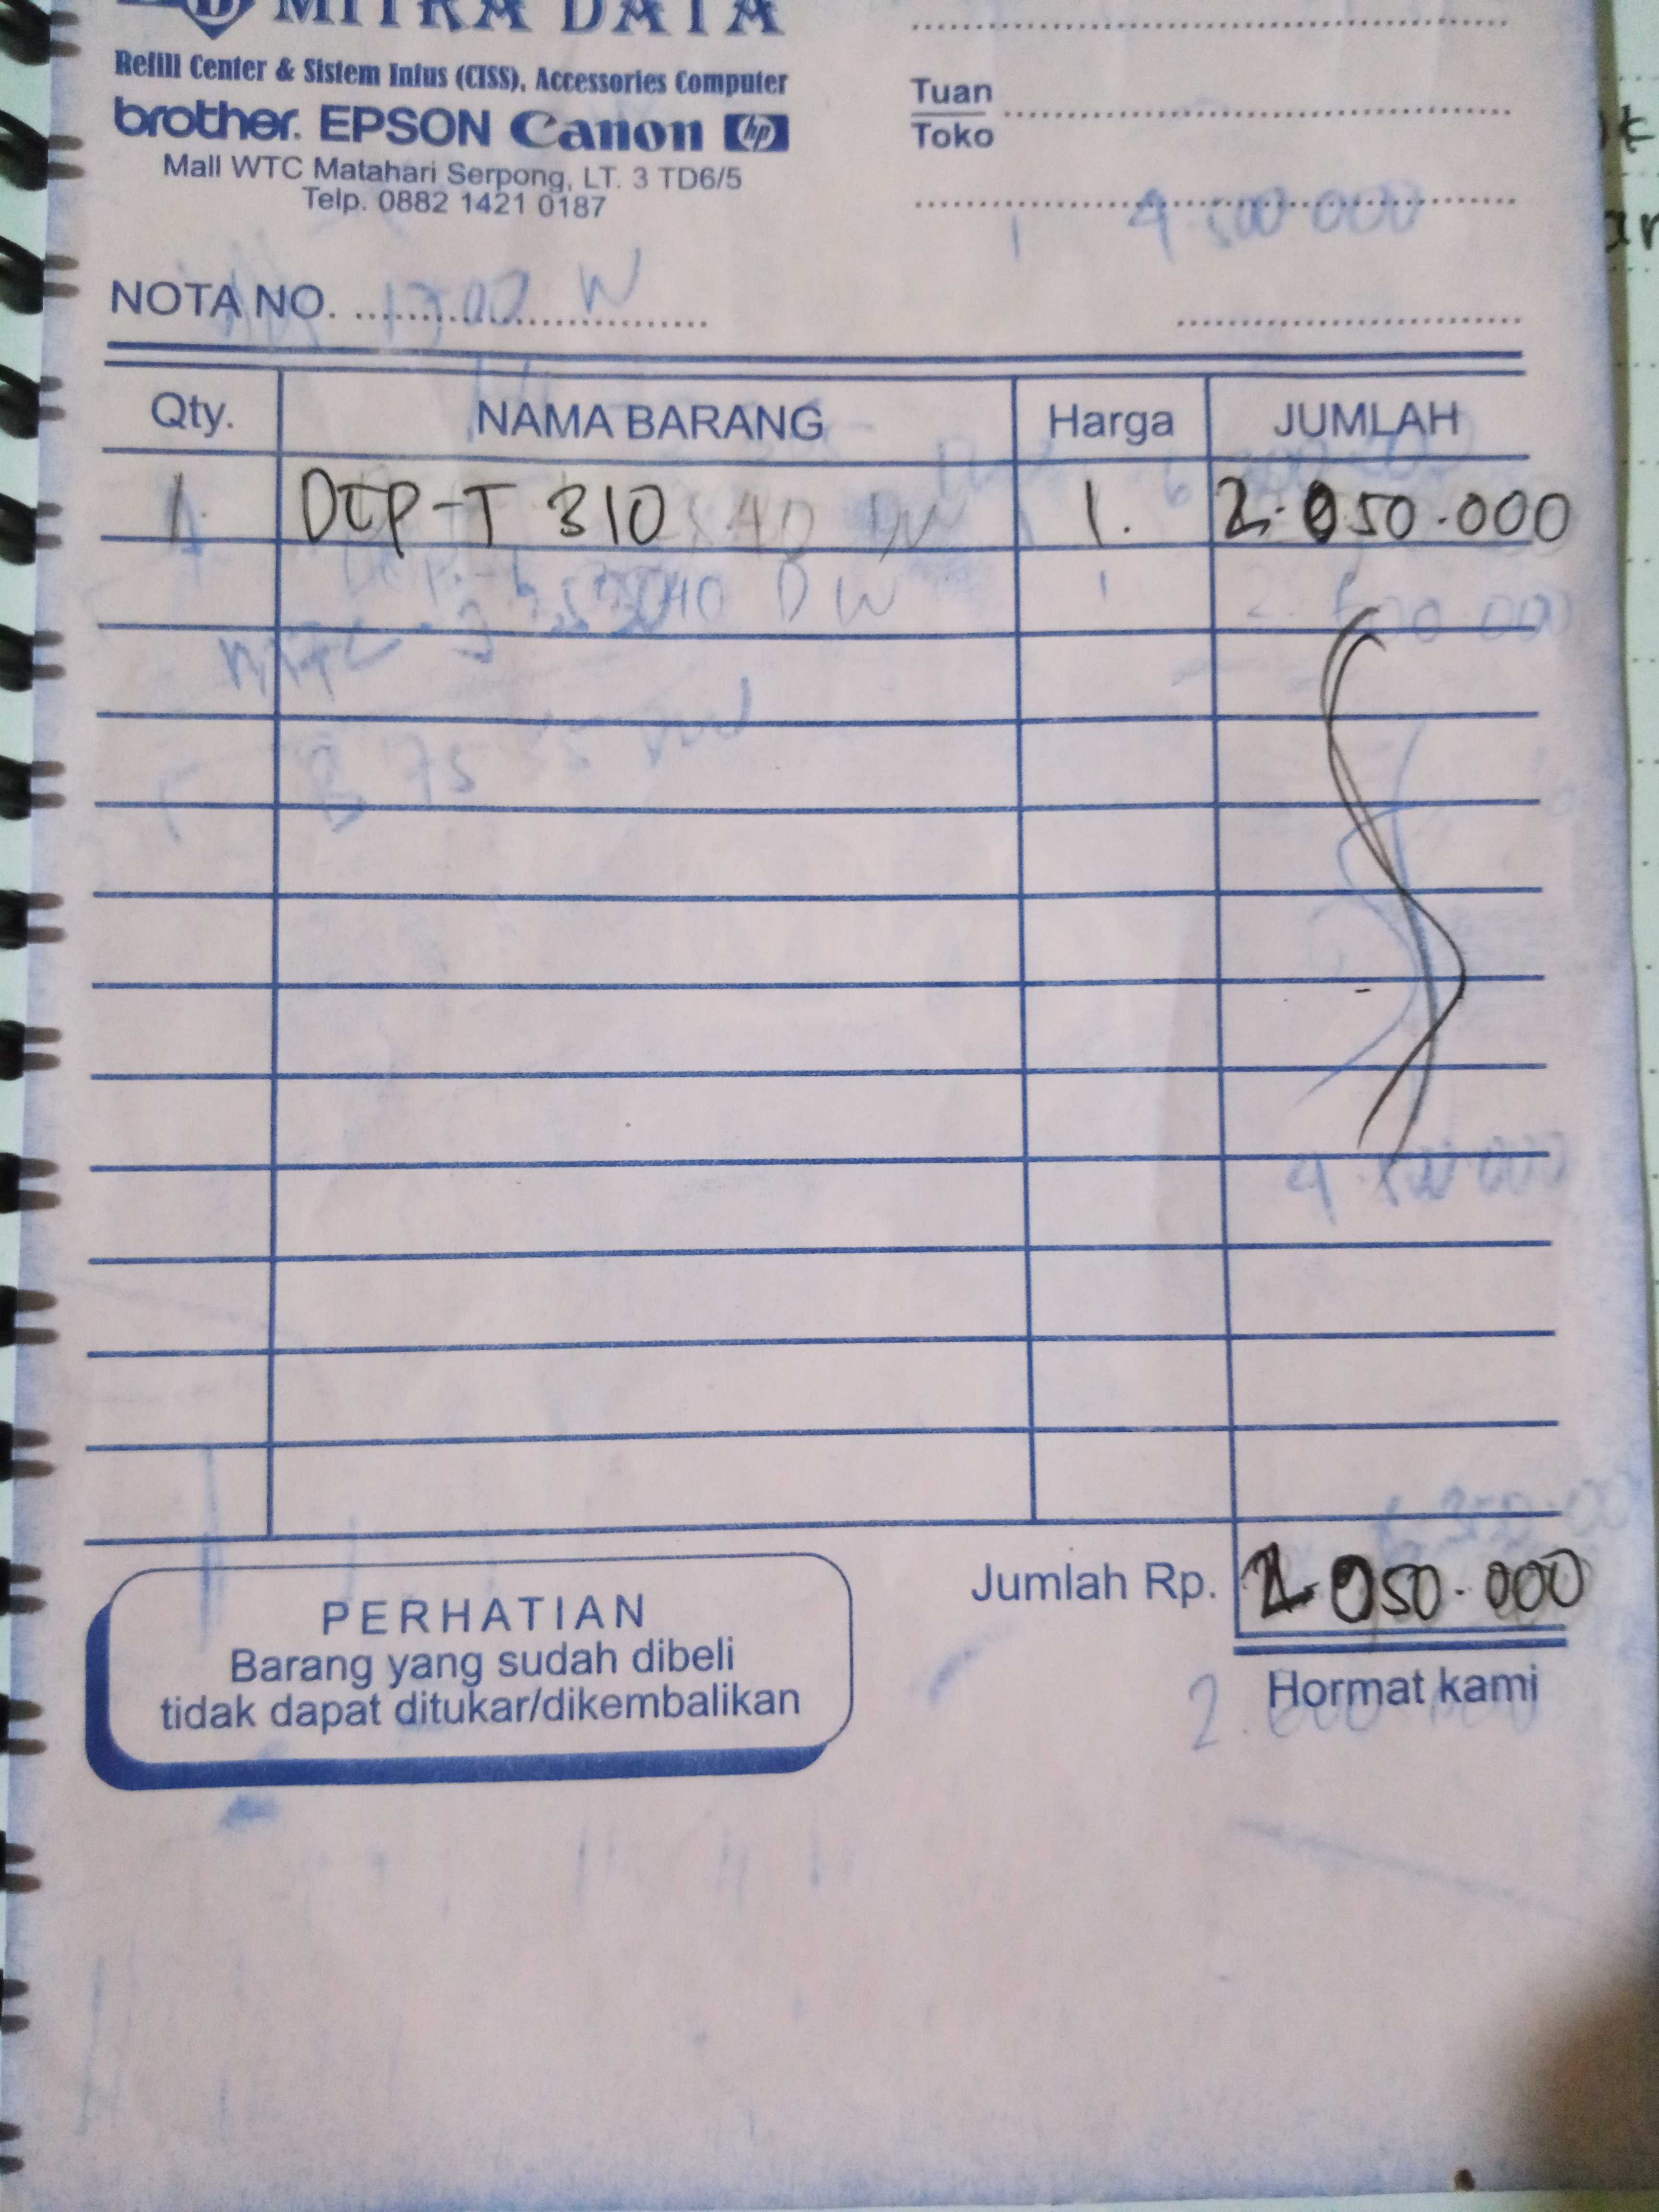 MITRA DATA
Refill Center & Sistem Infus (CISS), Accessories Computer
brother. EPSON Canon hp
Mall WTC Matahari Serpong, LT. 3 TD6/5
Telp. 0882 1421 0187
Tuan
Toko
4.500.000
NOTA NO.
Qty. NAMA BARANG Harga JUMLAH
1 DCP-T 310 1. 2.050.000
40 DW
Jumlah Rp. 2.050.000
PERHATIAN
Barang yang sudah dibeli
tidak dapat ditukar/dikembalikan
Hormat kami